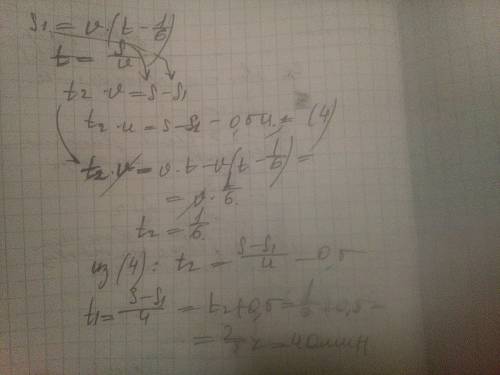 S₁ = v·(t − 1/6)
t = S/v
t₂·v = S − S₁
t₂·u = S − S₁ − 0,5u (4)
t₂·v = v·t − v(t − 1/6) =
= v·1/6
t₂ = 1/6
из (4): t₂ = (S − S₁)/u − 0,5
t₁ = (S − S₁)/u = t₂ + 0,5 = 1/6 + 0,5 =
= 2/3 ч = 40 мин